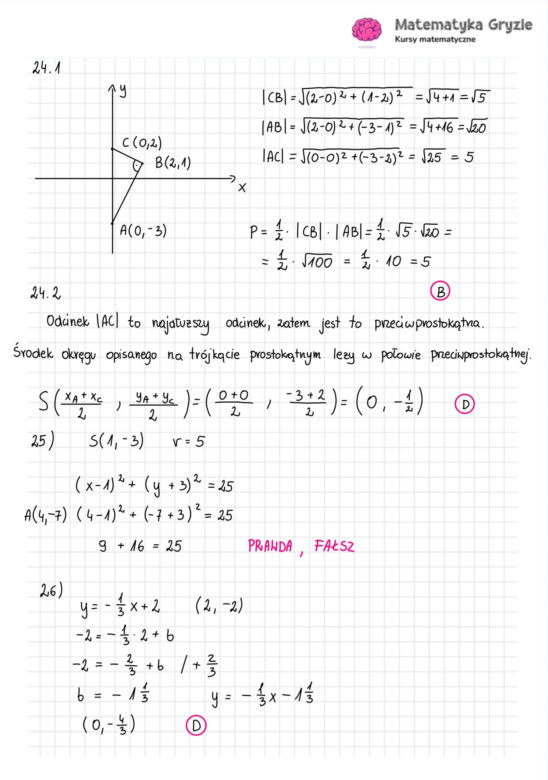 Matematyka Gryzie
Kursy matematyczne
24.1
y
C(0,2)
B(2,1)
x
A(0,-3)
|CB| = √((2-0)² + (1-2)²) = √(4+1) = √5
|AB| = √((2-0)² + (-3-1)²) = √(4+16) = √20
|AC| = √((0-0)² + (-3-2)²) = √25 = 5
P = 1/2 · |CB| · |AB| = 1/2 · √5 · √20 =
= 1/2 · √100 = 1/2 · 10 = 5
B
24.2
Odcinek |AC| to najdłuższy odcinek, zatem jest to przeciwprostokątna.
Środek okręgu opisanego na trójkącie prostokątnym leży w połowie przeciwprostokątnej.
S((x_A + x_C)/2 , (y_A + y_C)/2) = ((0+0)/2 , (-3+2)/2) = (0, -1/2) D
25) S(1,-3) r = 5
(x-1)² + (y+3)² = 25
A(4,-7) (4-1)² + (-7+3)² = 25
9 + 16 = 25 PRAWDA, FAŁSZ
26)
y = -1/3 x + 2 (2,-2)
-2 = -1/3 · 2 + b
-2 = -2/3 + b / + 2/3
b = -1 1/3 y = -1/3 x - 1 1/3
(0, -4/3) D